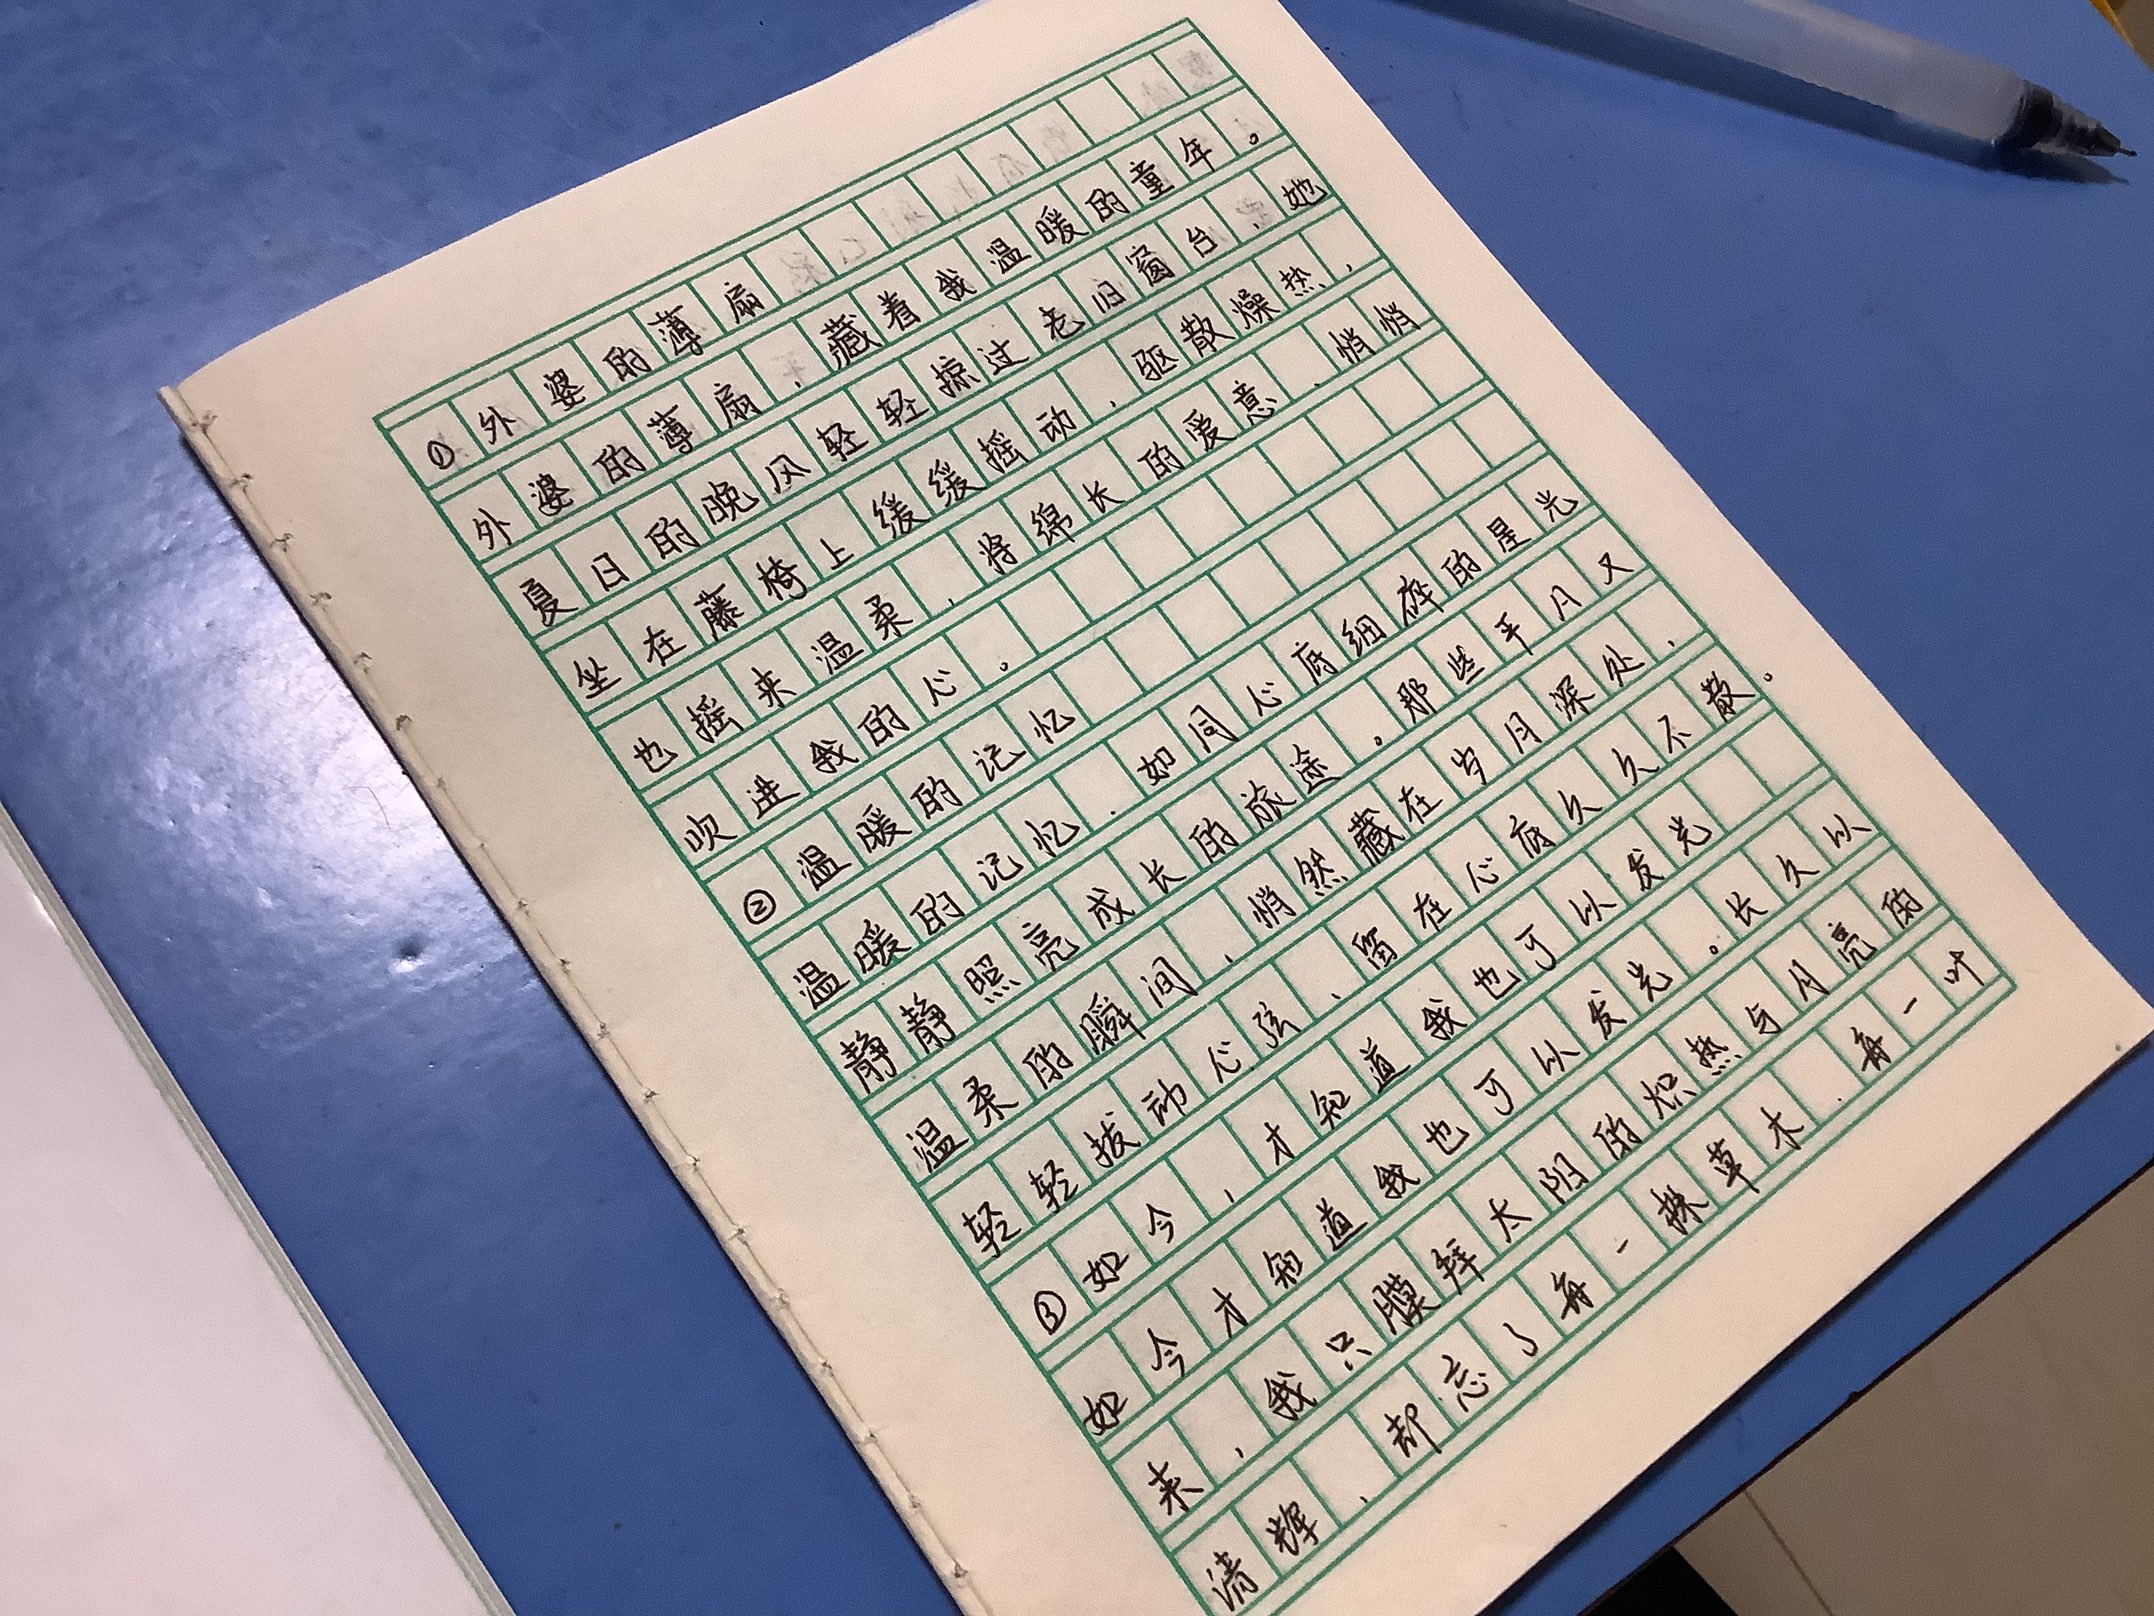 ①外婆的薄扇
外婆的薄扇，藏着我温暖的童年。
夏日的晚风轻轻掠过老旧窗台，她
坐在藤椅上缓缓摇动，驱散燥热，
也摇来温柔，将绵长的爱意、悄悄
吹进我的心。
②温暖的记忆
温暖的记忆，如同心底细碎的星光
静静照亮成长的旅途。那些平凡又
温柔的瞬间，悄然藏在岁月深处，
轻轻拨动心弦、留在心底久久不散。
③如今，才知道我也可以发光
如今才知道我也可以发光。长久以
来，我只膜拜太阳的炽热与月亮的
清辉，却忘了每一株草木，每一叶